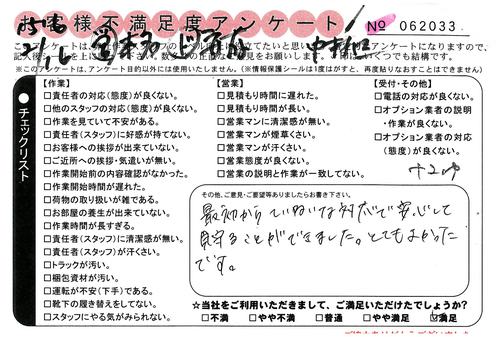 お客様不満足度アンケート
№ 062033
※このアンケートは、アンケート目的以外には使用いたしません。（※情報保護シールは1度はがすと、再度貼りなおすことはできません
チェックリスト
【作業】
□責任者の対応(態度)が良くない。
□他のスタッフの対応(態度)が良くない。
□作業を見ていて不安がある。
□責任者(スタッフ)に好感が持てない。
□お客様への挨拶が出来ていない。
□ご近所への挨拶・気遣いが無い。
□作業開始前の内容確認がなかった。
□作業開始時間が遅れた。
□荷物の取り扱いが雑である。
□お部屋の養生が出来ていない。
□作業時間が長すぎる。
□責任者(スタッフ)に清潔感が無い。
□責任者(スタッフ)が汗くさい。
□トラックが汚い。
□梱包資材が汚い。
□運転が不安(下手)である。
□靴下の履き替えをしてない。
□スタッフにやる気がみられない。
【営業】
□見積もり時間に遅れた。
□見積もり時間が長い。
□営業マンに清潔感が無い。
□営業マンが煙草くさい。
□営業マンが汗くさい。
□営業態度が良くない。
□営業の説明と作業が一致してない。
【受付・その他】
□電話の対応が良くない。
□オプション業者の説明
・作業が良くない。
□オプション業者の対応
(態度)が良くない。
その他、ご意見・ご要望等ありましたらお書き下さい。
最初からていねいな対応で安心して
見守ることができました。とてもよかった
です。
☆当社をご利用いただきまして、ご満足いただけたでしょうか?
□不満 □やや不満 □普通 □やや満足 ☑満足